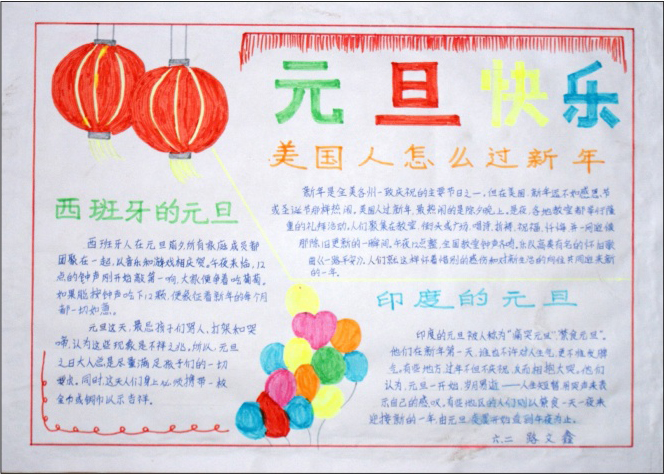 元旦快乐
美国人怎么过新年
新年是全美各州一致庆祝的主要节日之一,但在美国,新年远不如感恩节
或圣诞节那样热闹。美国人过新年,最热闹的是除夕晚上。是夜,各地教堂都举行隆
重的礼拜活动,人们聚集在教堂、街头或广场,唱诗、祈祷、祝福、忏悔,并一同迎候
那除旧更新的一瞬间。午夜12点整,全国教堂钟声齐鸣,乐队高奏有名的怀旧歌
曲《一路平安》。人们就这样怀着惜别的感伤和对新生活的向往共同迎来新
的一年。
西班牙的元旦
西班牙人在元旦前夕所有家庭成员都
团聚在一起,以音乐和游戏相庆贺。午夜来临,12
点的钟声刚开始敲第一响,大家便争着吃葡萄。
如果能按钟声吃下12颗,便象征着新年的每个月
都一切如意。
元旦这天,最忌孩子们骂人、打架和哭
啼,认为这些现象是不祥之兆。所以,元旦
之日大人总是尽量满足孩子们的一切
要求。同时,这天人们身上必须携带一枚
金币或铜币以示吉祥。
印度的元旦
印度的元旦被人称为“痛哭元旦”、“禁食元旦”。
他们在新年第一天,谁也不许对人生气,更不准发脾
气。有些地方过年不但不庆祝,反而相抱大哭,他们
认为,元旦一开始,岁月易逝——人生短暂,用哭声来表
示自己的感叹。有些地区的人们则以禁食一天一夜来
迎接新的一年,由元旦凌晨开始直到午夜为止。
六.二 路文鑫